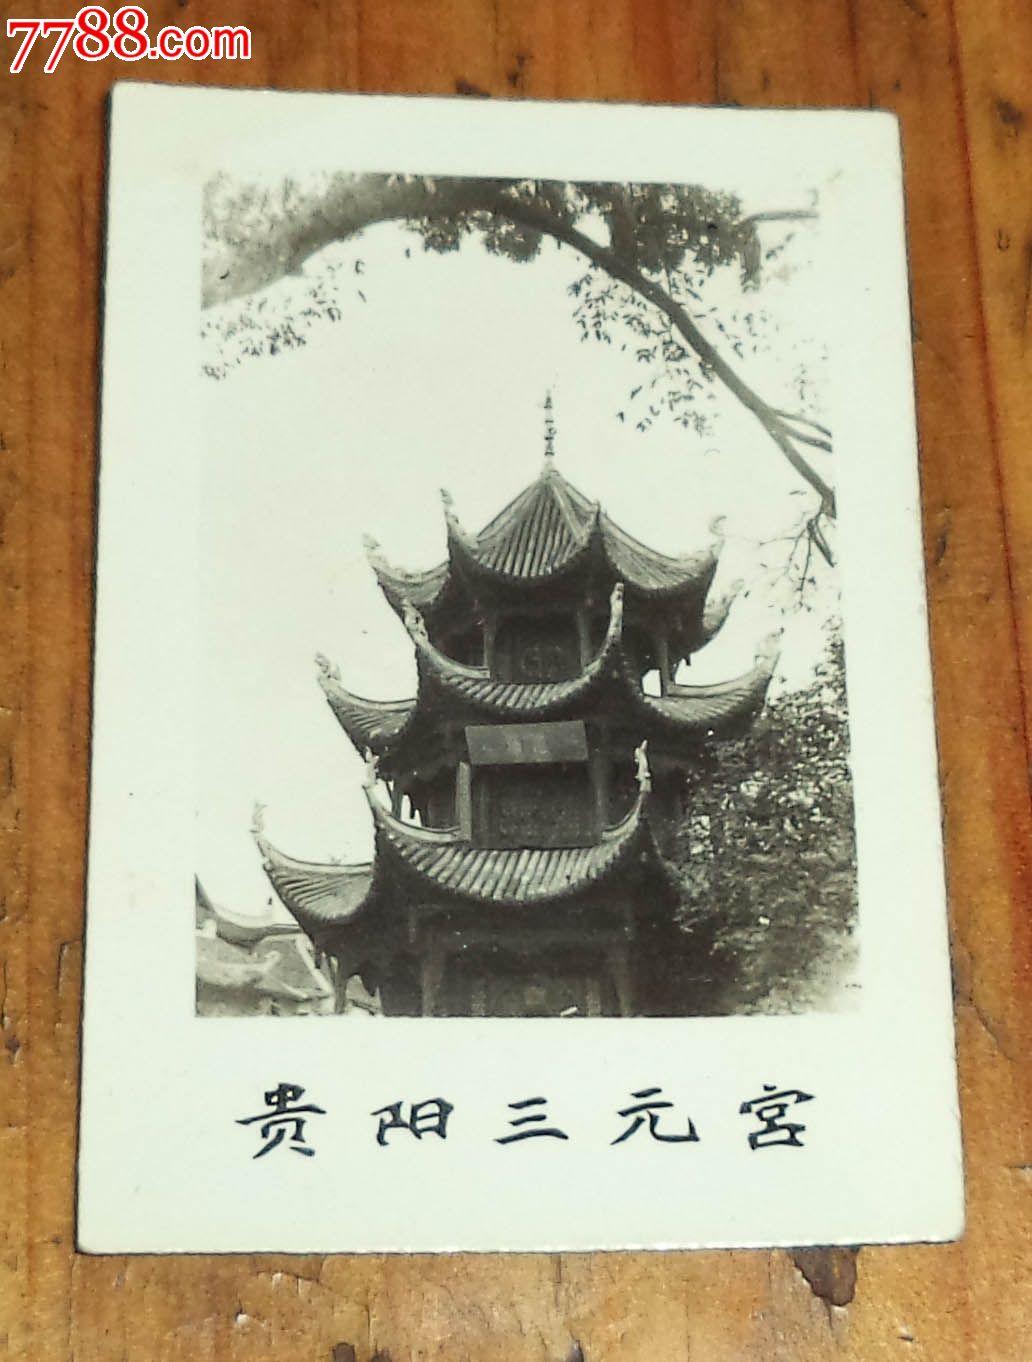 7788.com
贵阳三元宫